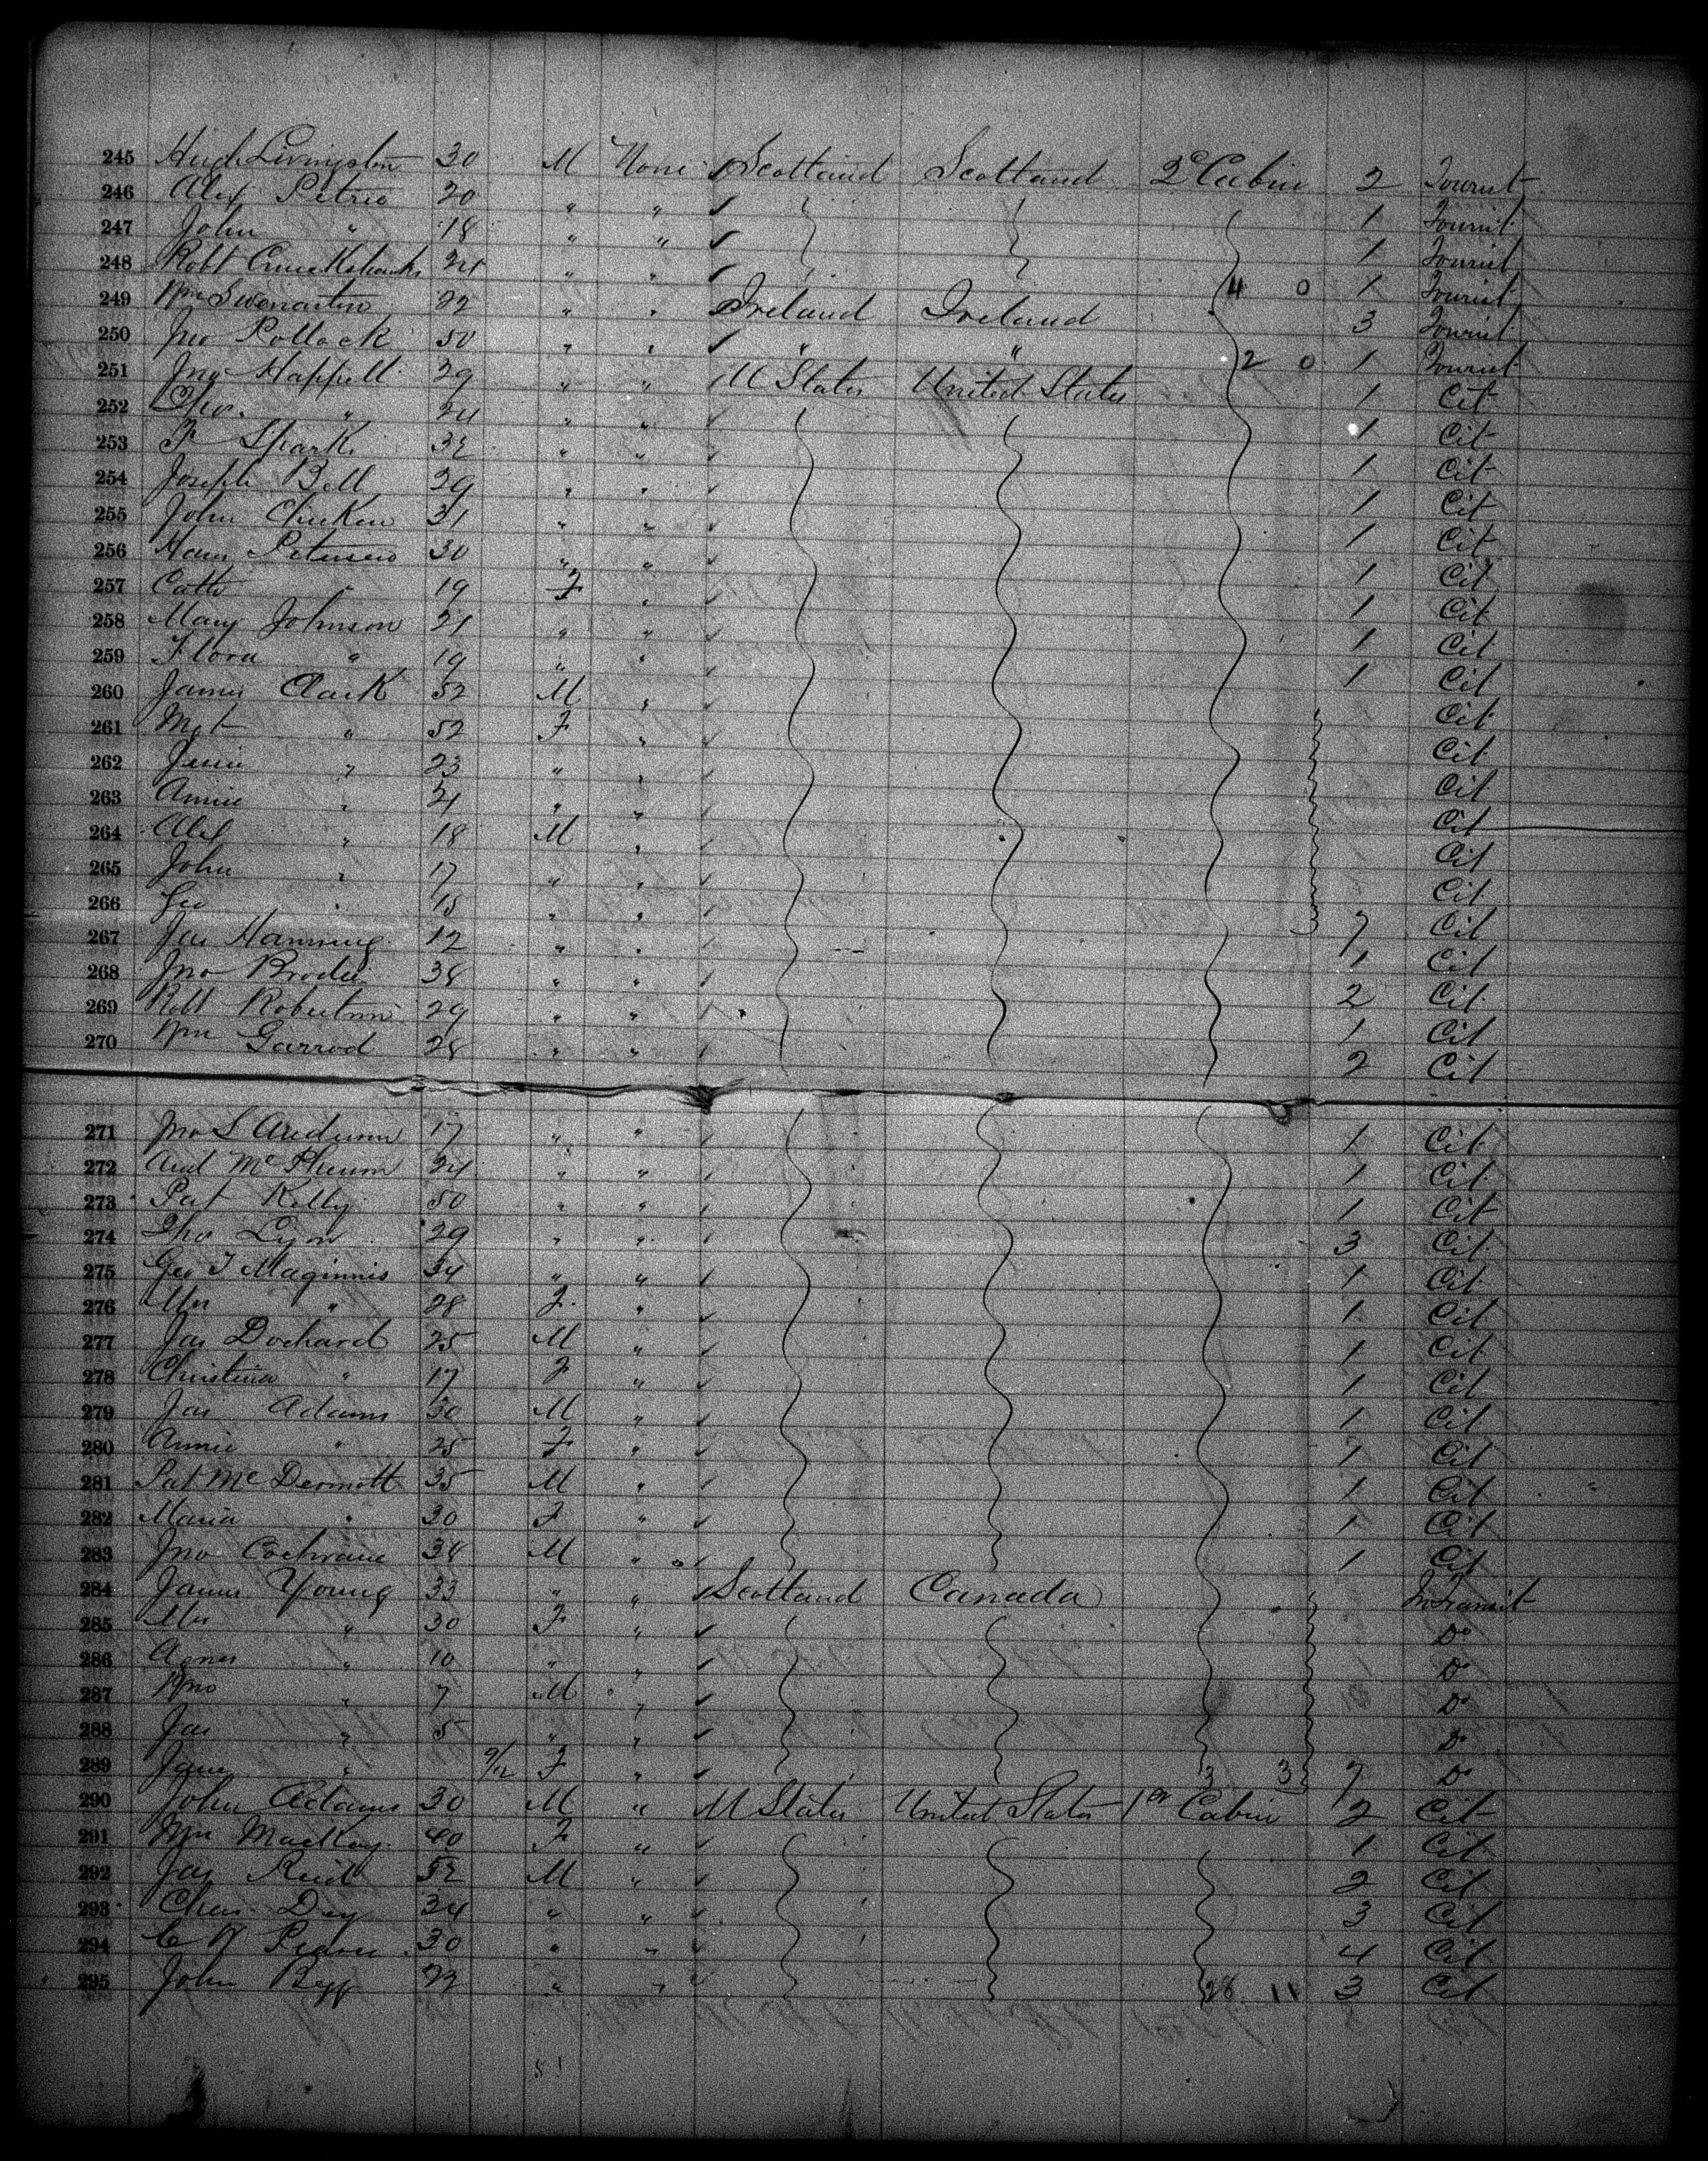 245 Hugh Livingston 30 M None Scotland Scotland 2d Cabin 2 Tourist
246 Alex Petrie 20 " " 1 Tourist
247 John " 18 " " 1 Tourist
248 Robt Cruickshank 24 " " 4 0 1 Tourist
249 Wm 22 " " Ireland Ireland 3 Tourist
250 Jno Pollock 50 " " " " 2 0 1 Tourist
251 Jno Happell 29 " " U States United States 1 Cit
252 " 24 " " 1 Cit
253 Spark 32 " " 1 Cit
254 Joseph Bell 29 " " 1 Cit
255 John Chicken 31 " " 1 Cit
256 Hans Petersen 30 " " 1 Cit
257 Cath " 19 F " 1 Cit
258 Mary Johnson 21 " " 1 Cit
259 Flora " 19 " " 1 Cit
260 James Clark 52 M " Cit
261 Mgt " 52 F " Cit
262 Jessie " 23 " " Cit
263 Annie " 21 " " Cit
264 Alex " 18 M " Cit
265 John " 17 " " Cit
266 Geo " 15 " " 7 Cit
267 Jas Manning 12 " " 1 Cit
268 Jno Brodie 38 " " 2 Cit
269 Robt Robertson 29 " " 1 Cit
270 Wm Garrod 28 " " 2 Cit
271 Jno S 17 " " 1 Cit
272 And 24 " " 1 Cit
273 Pat Kelly 50 " " 1 Cit
274 Tho Lyon 29 " " 3 Cit
275 Geo T Maginnis 34 " " 1 Cit
276 Mrs " 28 F " 1 Cit
277 Jas Dochard 25 M " 1 Cit
278 Christina " 17 F " 1 Cit
279 Jas Adams 30 M " 1 Cit
280 Annie " 25 F " 1 Cit
281 Pat McDermott 35 M " 1 Cit
282 Maria " 30 F " 1 Cit
283 Jno Cochrane 34 M " 1 Cit
284 James Young 33 " " Scotland Canada In Transit
285 Mrs " 30 F " Do
286 Agnes " 10 " " Do
287 " 7 M " Do
288 Jas " 5 " " Do
289 Jane " 9/12 F " 3 3 7 Do
290 John Adams 30 M " U States United States 1st Cabin 2 Cit
291 Mackay 40 F " 1 Cit
292 Jas Reid 52 M " 2 Cit
293 Chas Day 34 " " 3 Cit
294 Pearce 30 " " 4 Cit
295 John Begg 22 " " 28 11 3 Cit
51